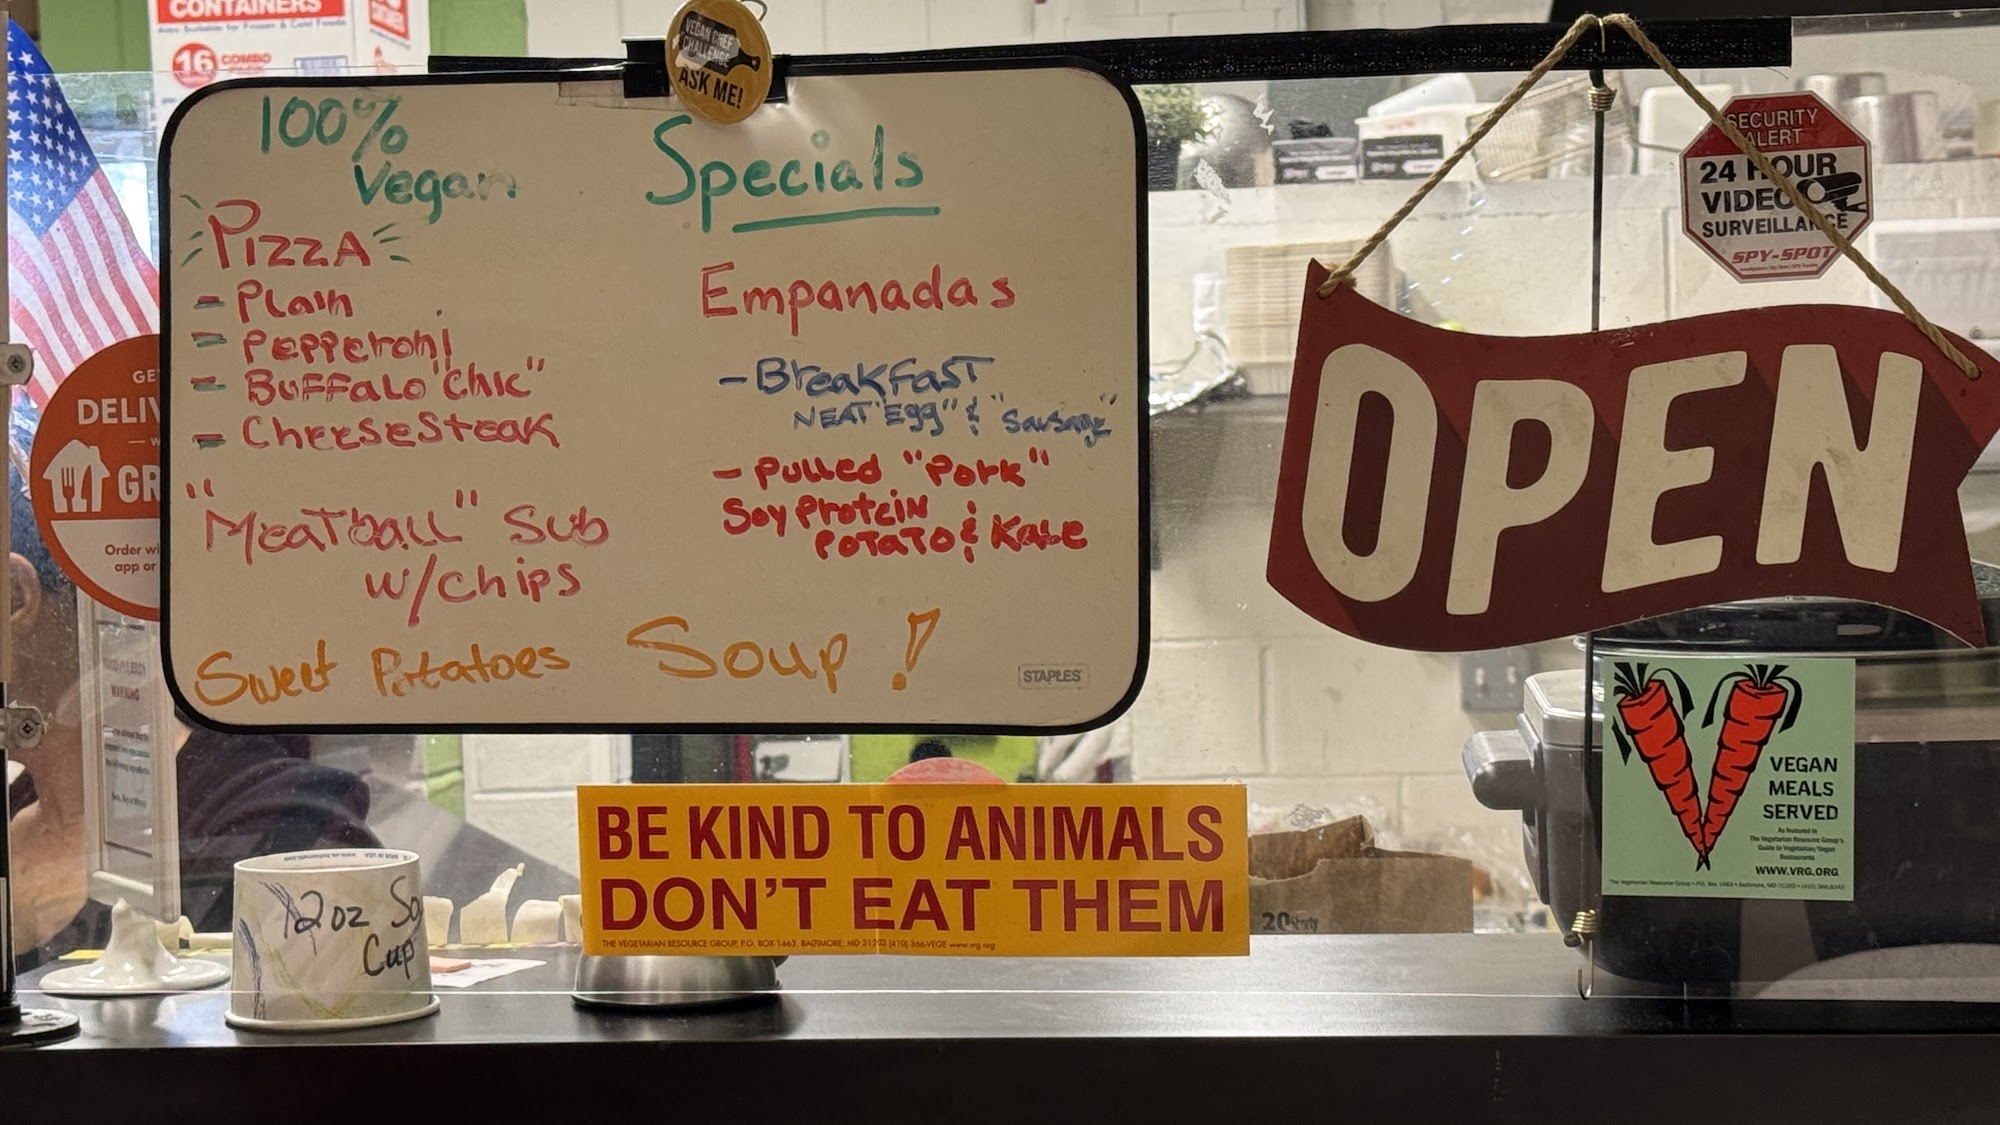 CONTAINERS
Also Suitable for Frozen & Cold Foods
16 COMBO
VEGAN CHEF
CHALLENGE
ASK ME!
100%
Vegan
PIZZA
- Plain
- Pepperoni
- Buffalo "Chic"
- CheeseSteak
"Meatball" Sub
w/chips
Sweet Potatoes Soup!
Specials
Empanadas
- Breakfast
NEAT "Egg" & "Sausage"
- Pulled "Pork"
Soy Protein
Potato & Kale
STAPLES
GE
DELIV
GR
Order wi
app or
SECURITY
ALERT
24 HOUR
VIDEO
SURVEILLANCE
SPY-SPOT
OPEN
VEGAN
MEALS
SERVED
As featured in
The Vegetarian Resource Group's
Guide to Vegetarian/Vegan
Restaurants
WWW.VRG.ORG
The Vegetarian Resource Group • P.O. Box 1463 • Baltimore, MD 21203 • (410) 366-8343
BE KIND TO ANIMALS
DON'T EAT THEM
THE VEGETARIAN RESOURCE GROUP, P.O. BOX 1463, BALTIMORE, MD 21203 (410) 366-VEGE www.vrg.org
12oz So
Cup
20
WARNING